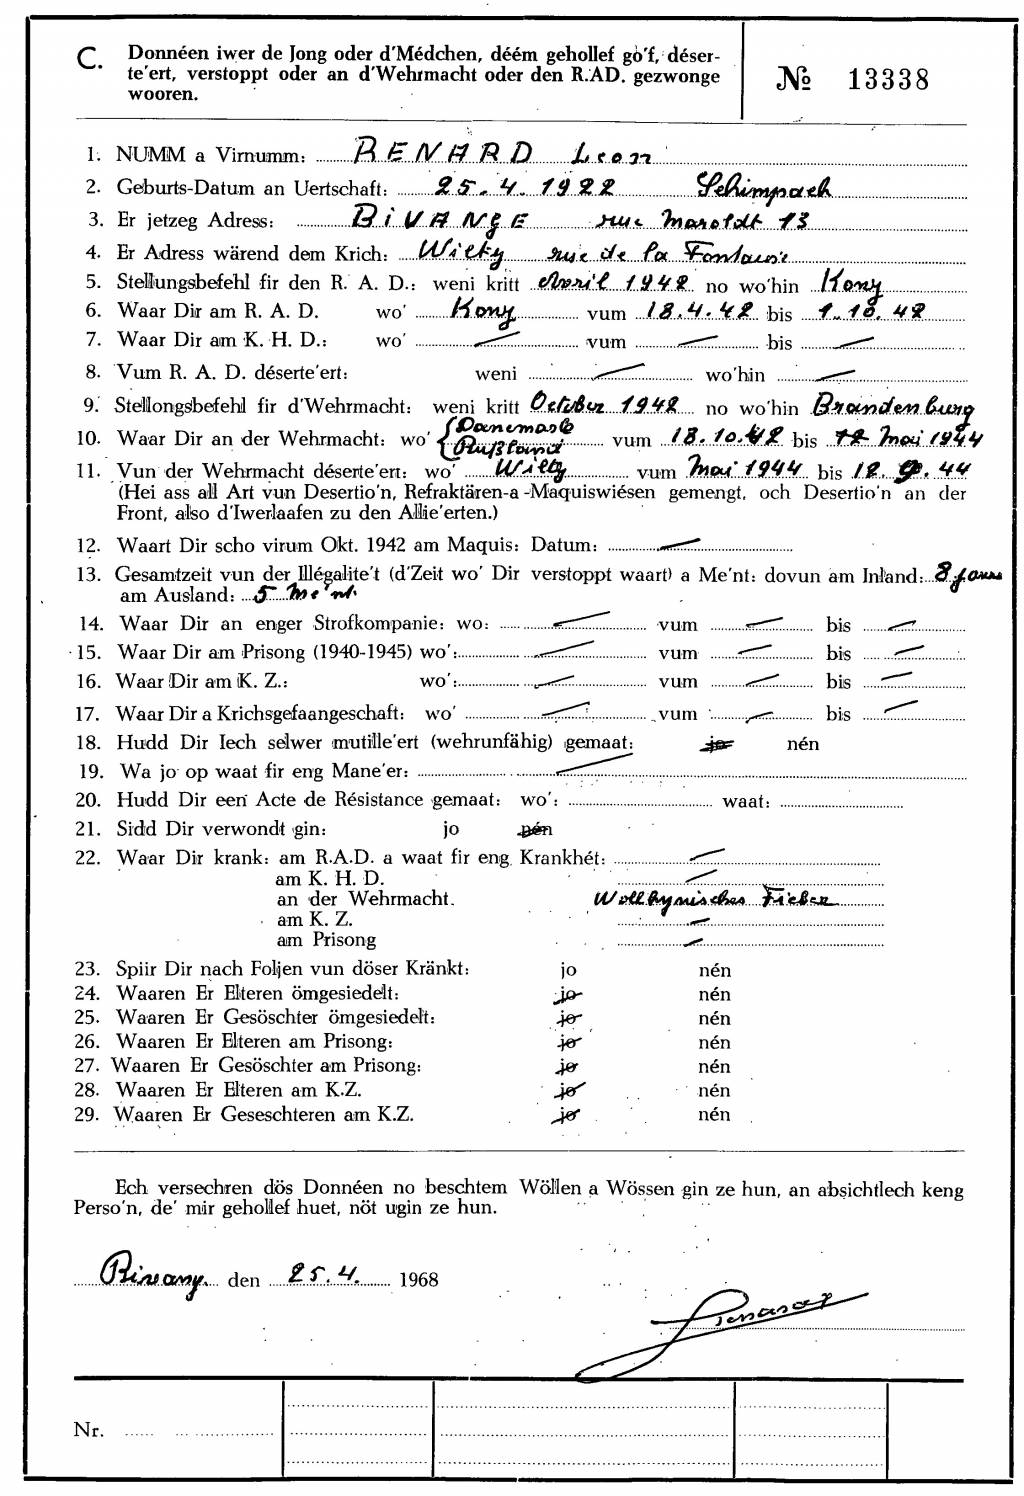 C. Donnéen iwer de Jong oder d'Médchen, déém gehollef gò'f, déser-
te'ert, verstoppt oder an d'Wehrmacht oder den R.AD. gezwonge
wooren.
№ 13338
1. NUMM a Virnumm: RENARD Leon
2. Geburts-Datum an Uertschaft: 25.4.1922 Schimpach
3. Er jetzeg Adress: BIVANGE rue Maroldt 13
4. Er Adress wärend dem Krich: Wiltz rue de la Fontaine
5. Stellungsbefehl fir den R. A. D.: weni kritt Avril 1942 no wo'hin Kony
6. Waar Dir am R. A. D. wo' Kony vum 18.4.42 bis 1.10.42
7. Waar Dir am K. H. D.: wo' — vum — bis —
8. Vum R. A. D. déserte'ert: weni — wo'hin —
9. Stellongsbefehl fir d'Wehrmacht: weni kritt October 1942 no wo'hin Brandenburg
10. Waar Dir an der Wehrmacht: wo' { Danemark Rußland vum 18.10.42 bis 12 Mai 1944
11. Vun der Wehrmacht déserte'ert: wo' Wiltz vum Mai 1944 bis 12. 9. 44
(Hei ass all Art vun Desertio'n, Refraktären-a-Maquiswiésen gemengt, och Desertio'n an der
Front, also d'Iwerlaafen zu den Allie'erten.)
12. Waart Dir scho virum Okt. 1942 am Maquis: Datum: —
13. Gesamtzeit vun der Illégalite't (d'Zeit wo' Dir verstoppt waart) a Me'nt: dovun am Inland: 8 jours
am Ausland: 5 Me'nt.
14. Waar Dir an enger Strofkompanie: wo: — vum — bis —
15. Waar Dir am Prisong (1940-1945) wo': — vum — bis —
16. Waar Dir am K. Z.: wo': — vum — bis —
17. Waar Dir a Krichsgefaangeschaft: wo' — vum — bis —
18. Hudd Dir Iech selwer mutille'ert (wehrunfähig) gemaat: jo nén
19. Wa jo op waat fir eng Mane'er: —
20. Hudd Dir een Acte de Résistance gemaat: wo': waat:
21. Sidd Dir verwondt gin: jo nén
22. Waar Dir krank: am R.A.D. a waat fir eng Krankhét: —
am K. H. D. —
an der Wehrmacht. Wolhynisches Fieber
am K. Z. —
am Prisong —
23. Spiir Dir nach Foljen vun döser Kränkt: jo nén
24. Waaren Er Elteren ömgesiedelt: jo nén
25. Waaren Er Gesöschter ömgesiedelt: jo nén
26. Waaren Er Elteren am Prisong: jo nén
27. Waaren Er Gesöschter am Prisong: jo nén
28. Waaren Er Elteren am K.Z. jo nén
29. Waaren Er Geseschteren am K.Z. jo nén
Ech versechren dös Donnéen no beschtem Wöllen a Wössen gin ze hun, an absichtlech keng
Perso'n, de' mir gehollef huet, nöt ugin ze hun.
Bivang. den 25.4. 1968
Renard
Nr.